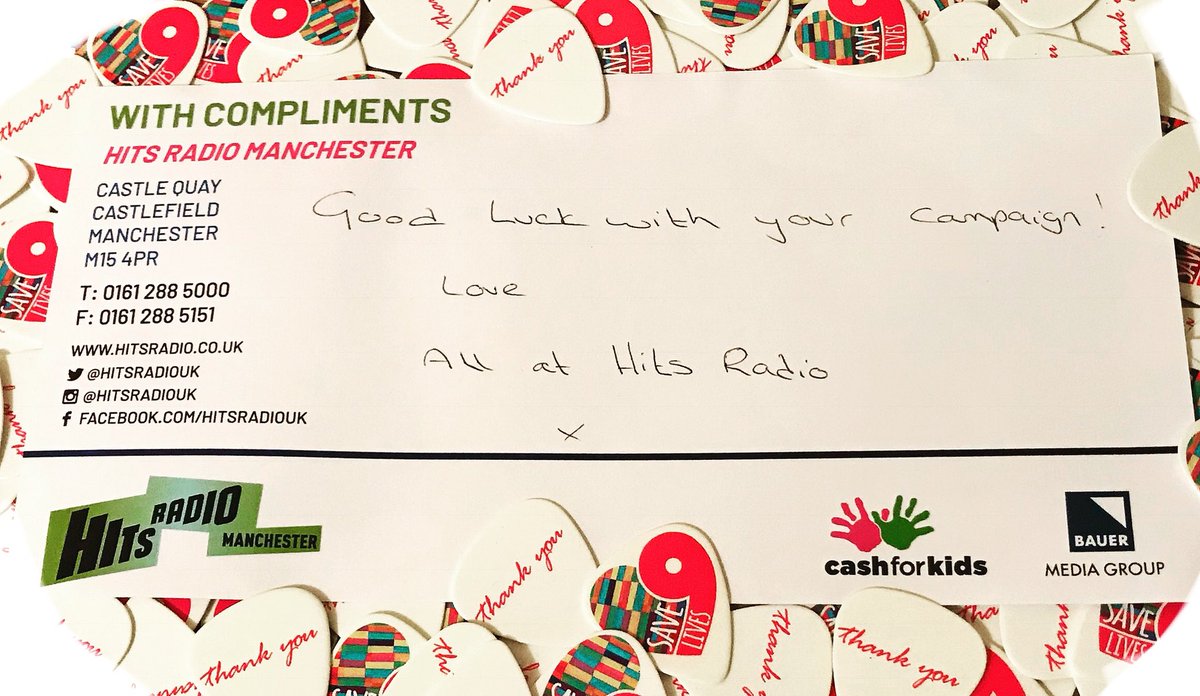 WITH COMPLIMENTS
HITS RADIO MANCHESTER
CASTLE QUAY
CASTLEFIELD
MANCHESTER
M15 4PR
T: 0161 288 5000
F: 0161 288 5151
WWW.HITSRADIO.CO.UK
@HITSRADIOUK
@HITSRADIOUK
FACEBOOK.COM/HITSRADIOUK
Good Luck with your campaign!
Love
All at Hits Radio
x
HITS RADIO MANCHESTER
cashforkids
BAUER
MEDIA GROUP
thank you
SAVE
LIVES
thank you
SAVE
LIVES
thank you
SAVE
LIVES
thank
SAVE
LIVES
thank you
SAVE
LIVES
thank you
thank you
thank you
SAVE
LIVES